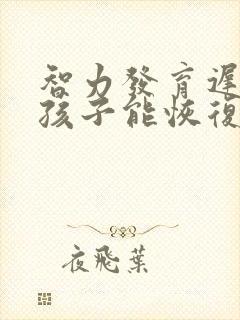 智力發育遲
孩子能恢復
夜飛葉